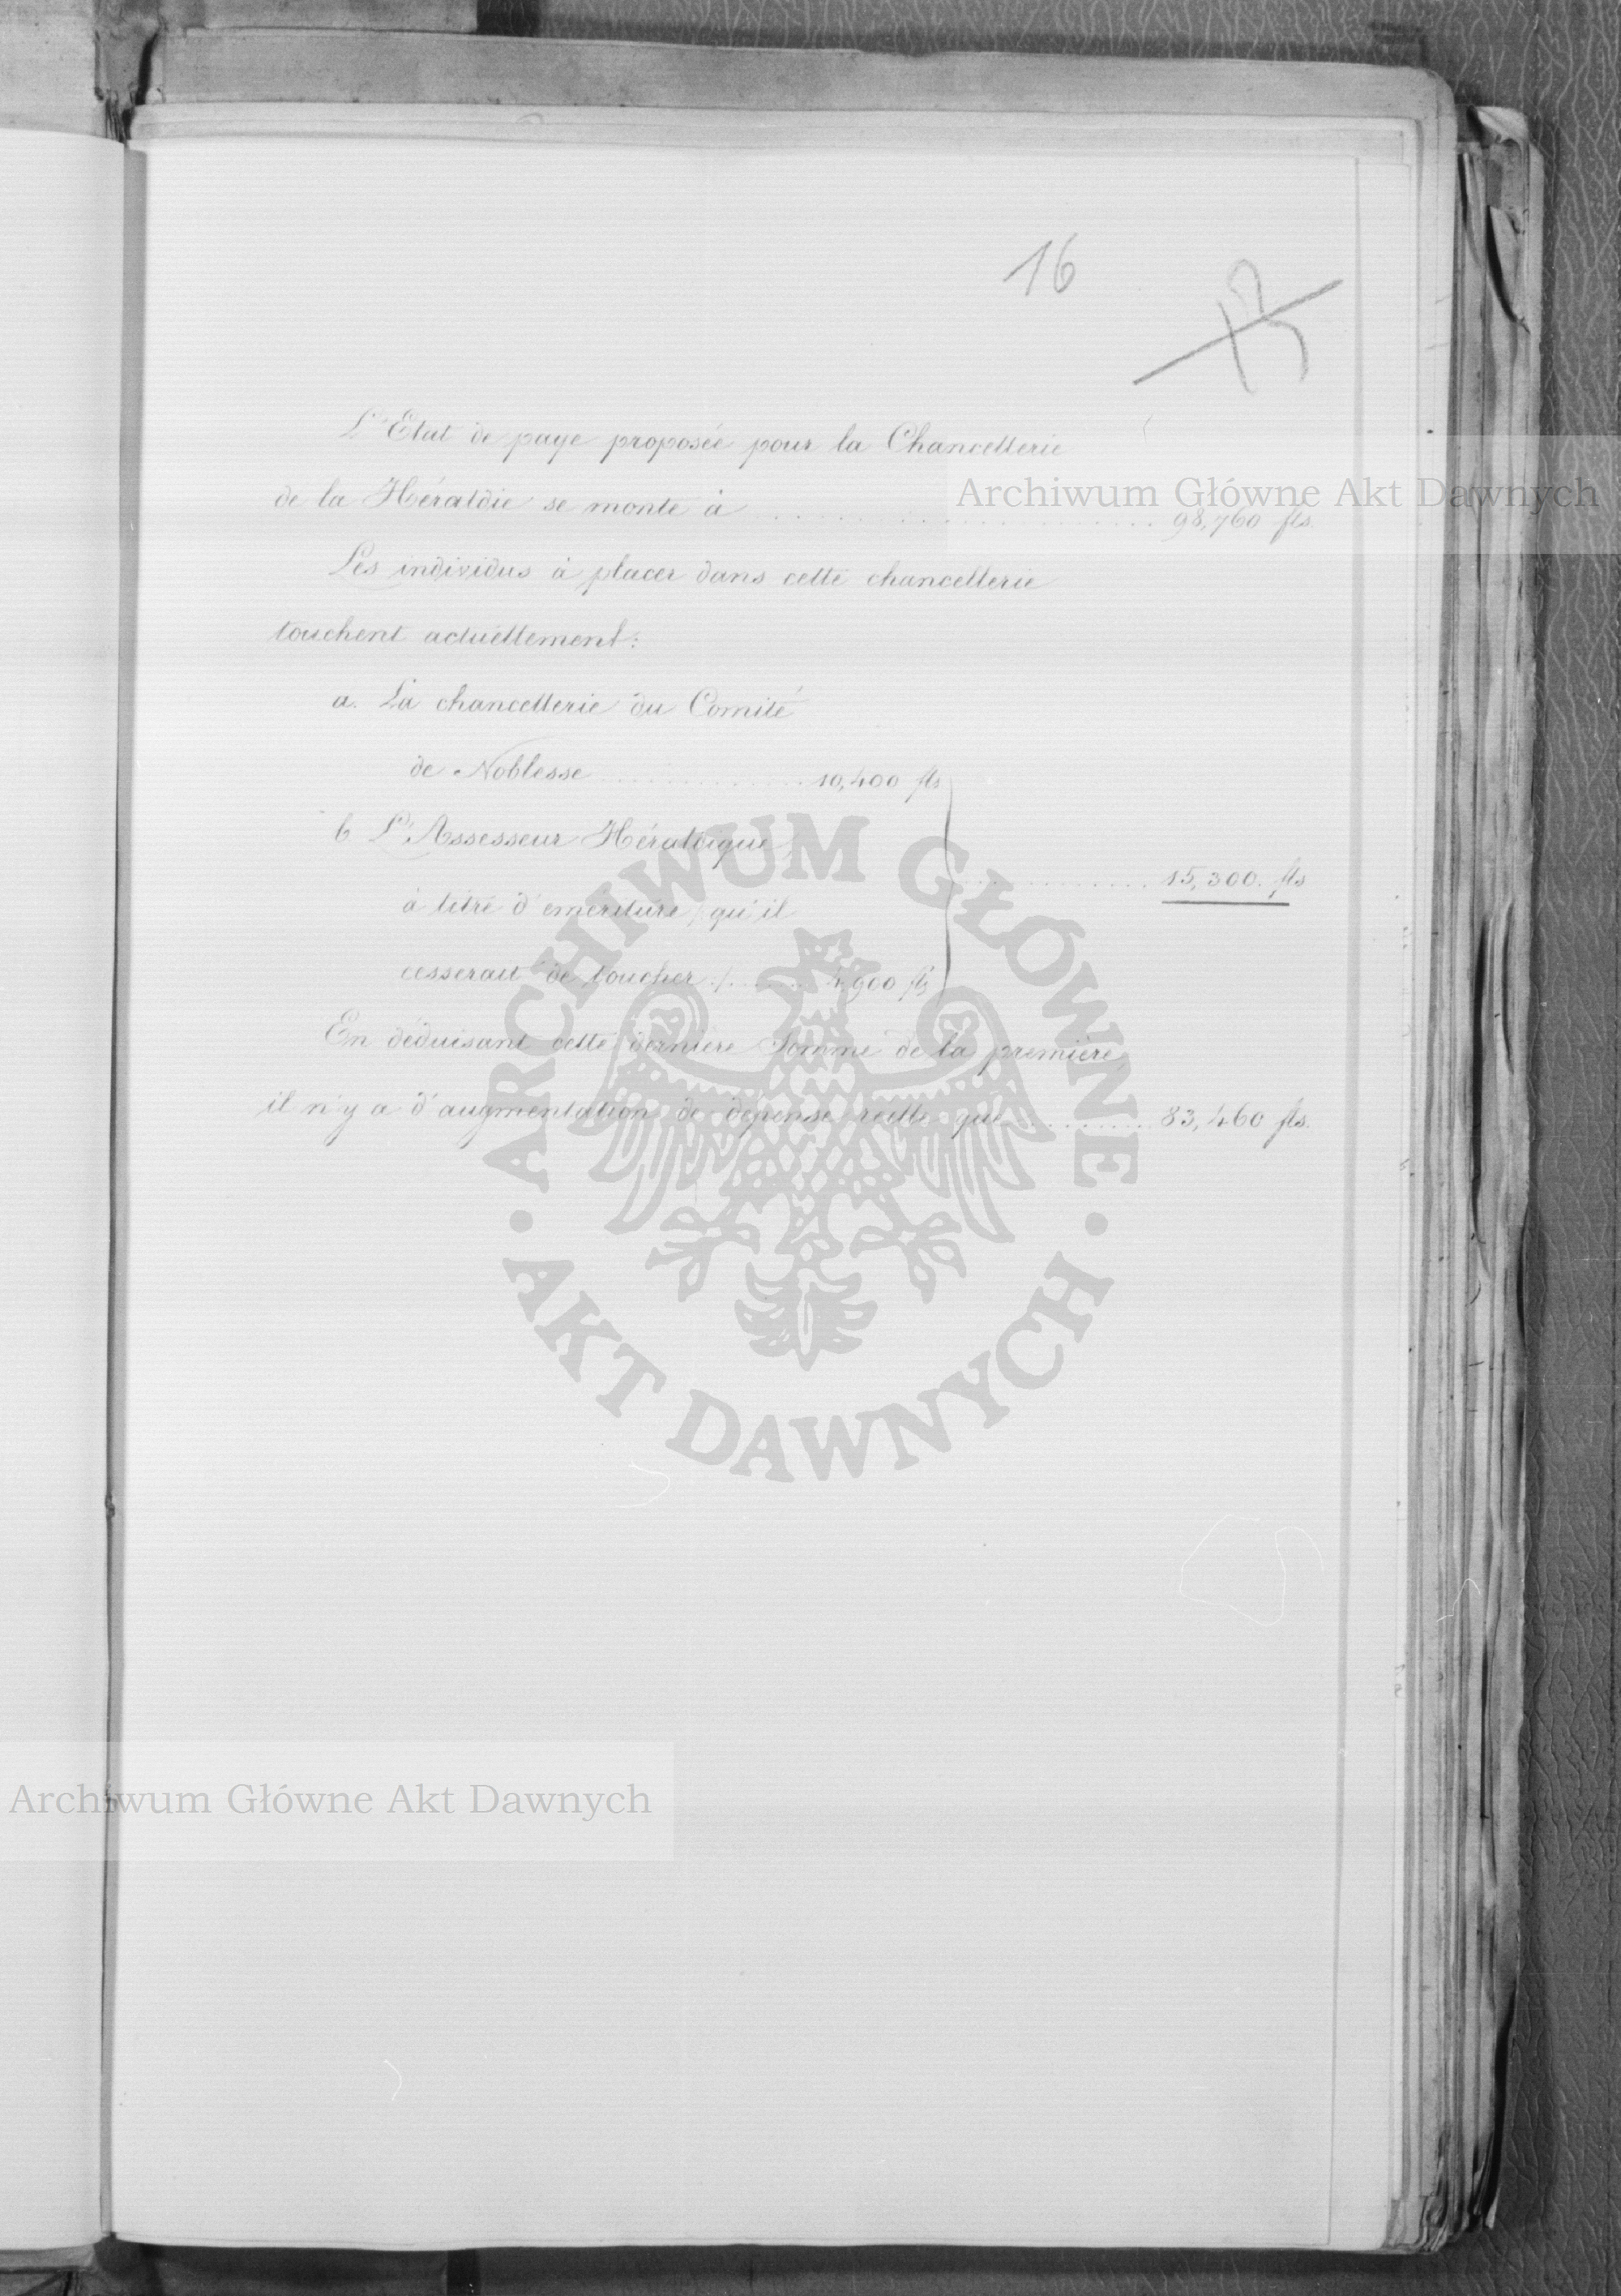 16
L'Etat de paye proposée pour la Chancellerie
de la Héraldie se monte à . . . . . . . . . . 98,760 fls.
Les individus à placer dans cette chancellerie
touchent actuellement:
a. La chancellerie du Comité
de Noblesse . . . . . . . . . . 10,400 fls
b L'Assesseur Héraldique
. . . . . . . . . . 15,300. fls
à titre d'emeriture /: qu'il
cesserait de toucher :/ . . . . . . 4,900 fls
En déduisant cette dernière Somme de la première,
il n'y a d'augmentation de depense réelle que . . . . . . . . . 83,460 fls.
Archiwum Główne Akt Dawnych
ARCHIWUM GŁÓWNE
AKT DAWNYCH
Archiwum Główne Akt Dawnych